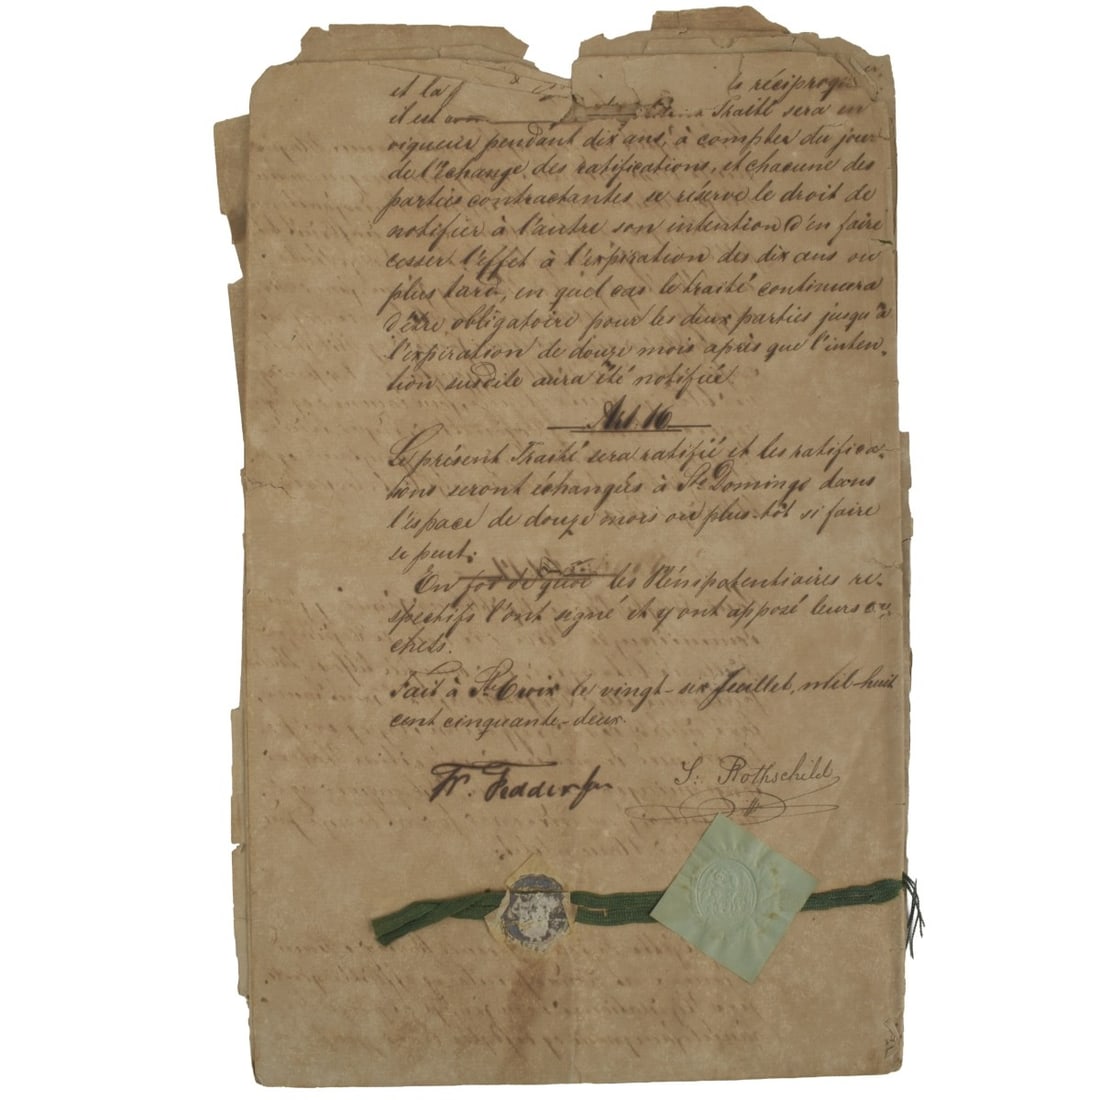 et la réciproque
il est Traité sera en
vigueur pendant dix ans, à compter du jour
de l'Échange des ratifications, et chacune des
parties contractantes se réserve le droit de
notifier à l'autre son intention d'en faire
cesser l'effet à l'éxpiration des dix ans ou
plus tard, en quel cas le traité continuera
d'être obligatoire pour les deux parties jusqu'à
l'expiration de douze mois après que l'inten-
tion susdite aura été notifiée.
Art. 16
Le présent Traité sera ratifié et les ratifica-
tions seront échangées à St. Domingo dans
l'espace de douze mois ou plus-tôt si faire
se peut.
En foi de quoi les Plénipotentiaires re-
spectifs l'ont signé et y ont apposé leurs ca-
chets.
Fait à Ste Croix le vingt-six Juillet, mil-huit
cent cinquante-deux.
Fr. Feddersen
S: Rothschild